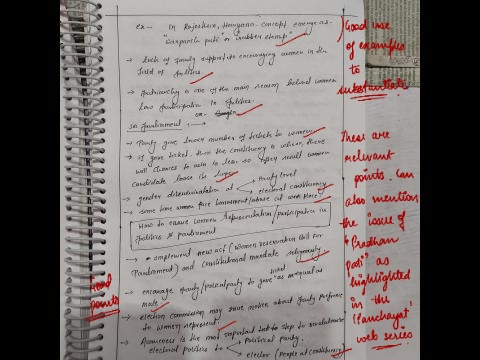 ex- In Rajasthan, Haryana concept emerge as
"sarpanch pati" or "rubber stamp"
→ Lack of family support to encouraging women in the
field of Politics
→ Patriarchy is one of the main reason behind women
low participation in Politics.
ex-
In Parliament :→
→ Party give lower number of tickets to women
→ if gave ticket, then the constituency is where, there
will chances to win is less so they result women
candidate lose in
gender discrimination at → Party level
→ electoral constituency
→ some time women face harassment/abuse at work place
How to ensure women Representation/participation in
Politics & parliament
→ implement new act (Women reservation Bill for
Parliament) and Constitutional mandate religiously.
→ encourage party/Political party to give ticket in equal as
male
→ election commission may issue notice about party Performa
to women represent.
→ Awareness is the most important tool to step to revolutionise
electoral politics to → Political party.
→ elector (People at constituency)
Good use
of examples
to
substantiate
These are
relevant
points. Can
also mention
the issue of
"Pradhan
Pati" as
highlighted
in the
'Panchayat'
web series
Good
points